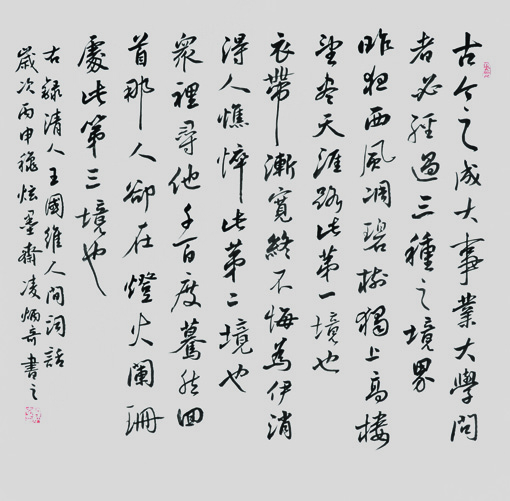 古今之成大事業大學問
者必經過三種之境界
昨夜西風凋碧樹獨上高樓
望盡天涯路此第一境也
衣帶漸寬終不悔為伊消
得人憔悴此第二境也
衆裡尋他千百度驀然回
首那人卻在燈火闌珊
處此第三境也
右錄清人王國維人間詞話
歲次丙申穐炫墨齋凌炳奇書之